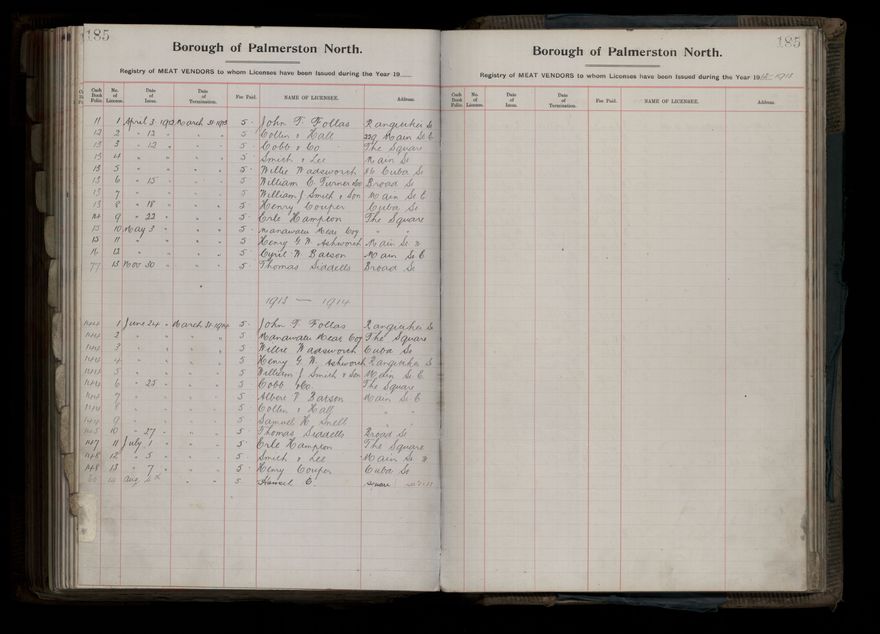 185
Borough of Palmerston North.
Registry of MEAT VENDORS to whom Licenses have been Issued during the Year 19
Cash Book Folio. No. of License. Date of Issue. Date of Termination. Fee Paid. NAME OF LICENSEE. Address.
11 1 April 3 1912 March 31 1913 5 John T Follas Rangitikei St
12 2 " 12 " " " 5 Collin & Hall 229 Main St E
13 3 " 12 " " " 5 Cobb & Co The Square
13 4 " " " " 5 Smith & Lee Main St
13 5 " " " " 5 Willie Wadsworth 86 Cuba St
13 6 " 15 " " " 5 William C. Turner & Co Broad St
13 7 " " " " 5 William J Smith & Son Main St E
13 8 " 18 " " " 5 Henry Couper Cuba St
14 9 " 22 " " " 5 Erle Hampton The Square
15 10 May 3 " " " 5 Manawatu Meat Coy " "
15 11 " " " " 5 Henry G. W. Ashworth Main St W
16 12 " " " 5 Cyril W Batson Main St E
77 13 Nov 30 " " 5 Thomas Siddells Broad St
1913 — 1914
144 1 June 24 " March 31 1914 5 John T Follas Rangitikei St
144 2 " " " " 5 Manawatu Meat Coy The Square
144 3 " " " " 5 Willie Wadsworth Cuba St
144 4 " " " " 5 Henry G. W. Ashworth Rangitikei S
144 5 " " " " 5 William J Smith & Son Main St E
144 6 " 25 " " " 5 Cobb & Co. The Square
144 7 " " " " 5 Albert V Batson Main St E
144 8 " " " " 5 Collin & Hall " "
144 9 " " " " 5 Samuel H Snell " "
145 10 " 27 " " " 5 Thomas Siddells Broad St
147 11 July 1 " " " 5 Erle Hampton The Square
148 12 " 5 " " " 5 Smith & Lee Main St W
148 13 " 7 " " " 5 Henry Couper Cuba St
60 14 Aug " " 5 E. Square
185
Borough of Palmerston North.
Registry of MEAT VENDORS to whom Licenses have been Issued during the Year 1912-1913
Cash Book Folio. No. of License. Date of Issue. Date of Termination. Fee Paid. NAME OF LICENSEE. Address.